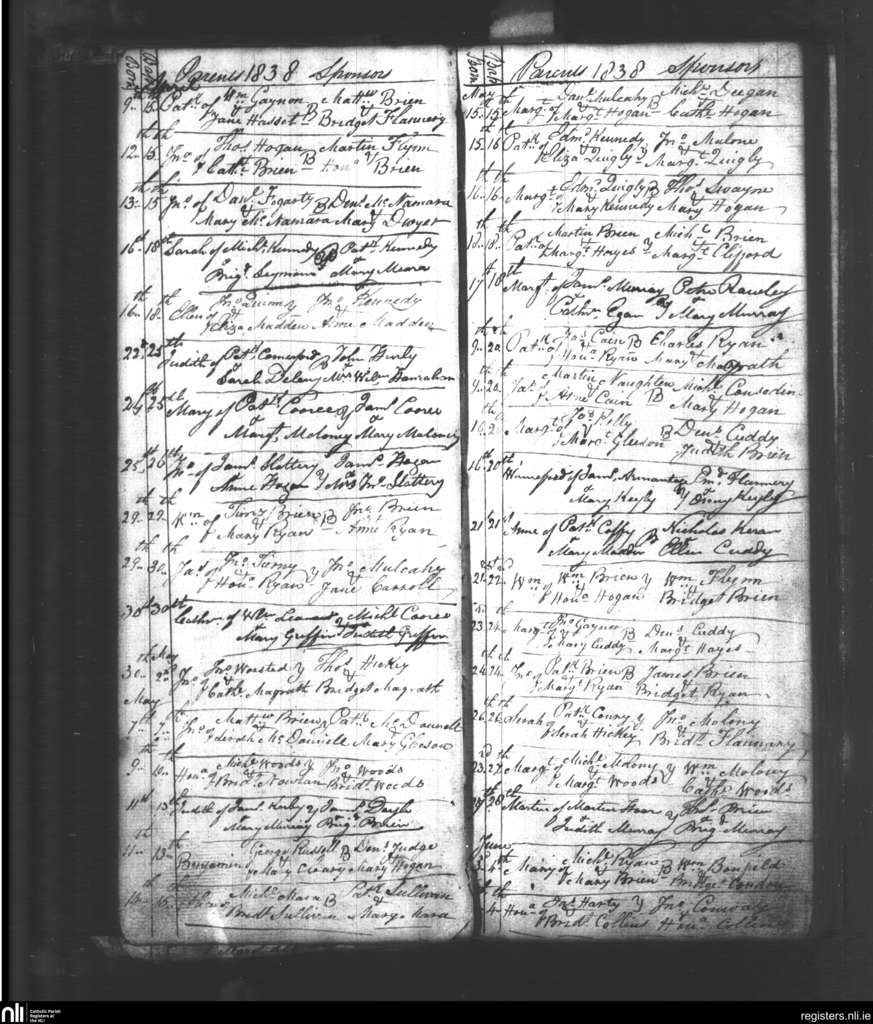 Born Bap Parents 1838 Sponsors
April
9th 15th Patk. of Wm Gaynon Mattw Brien
& Jane Hasset B Bridget Flannery
12th 15th Jno. of Thos. Hogan Martin Flynn
& Cathe. Brien B Hono. Brien
13th 15th Jno. of Danl. Fogarty B Denl. McNamara
Mary McNamara Mary Dwyer
16th 18th Sarah of Michl. Kennedy Patk. Kennedy
& Brigt. Seymour Mary Meara
16th 18th Ellen of Jno. Quinn y Jno. Kennedy
& Eliza Madden Anne Madden
22d 25th Judith of Patk. Comerford B John
& Sarah Delany Mrs. Hanrahan
24th 25th Mary of Patk. Conree y Jams. Conree
& Margt. Moloney Mary Maloney
25th 26th Jno. of Jams. Slattery Jams. Hogan
Anne Hogan y Mrs. Jno. Slattery
29th 29th Wm of Timy. Brien B Jno. Brien
& Mary Ryan Anne Ryan
29th 30th Jas. of Jno. Tierny y Jno. Mulcahy
& Hono. Ryan Jane Carroll
30th 30th Cathn. of Wm Leonard y Michl. Conree
& Mary Griffin Judith Griffin
30th May 2nd Jno. of Jno. Worsted y Thos. Hickey
& Cathe. Magrath Bridget Magrath
May
7th 7th Jno. of Mattw Brien y Patk. McDonnell
& Serah McDonnell Mary Gleeson
9th 10th Hono. of Michl. Woods y Jno. Woods
& Bridt. Nowlan Bridt. Woods
11th 13th Judith of Jams. Kirby y Jams. Doughe
& Mary Brigt. Brien
11th 13th Benjamin of George Russell B Denl. Judge
& Mary Cleary Mary Hogan
14th 15th of Michl. Mara B Patk. Sullivan
& Bridt. Sullivan Mary Mara
Born Bap Parents 1838 Sponsors
May
15th 15th Margt. of Danl. Mulcahy Michl. Deegan
& Margt. Hogan B Cathe. Hogan
15th 16th Patk. of Edmd. Kennedy y Jno. Malone
& Eliza Quigly Margt. Quigly
16th 16th Margt. of Edmd. Quigly B Thos. Swayne
& Mary Kennedy Mary Hogan
18th 18th Patk. of Martin Breen Michl. Brien
& Margt. Hayes y Margt. Clifford
17th 18th Margt. of Jams. Murray Peter Rawley
& Cathn. Egan y Mary Murray
9th 20th Patk. of Jas. Cain B Charles Ryan
& Hono. Ryan Mary Magrath
9th 20th Jas. of Martin Naughton Michl. Considin
& Anne Cain B Mary Hogan
Margt. of Jas. Kelly Denl. Cuddy
& Margt. Gleeson B Judith Brien
16th 20th Winnefred of Jams. Edmd. Flannery
& Mary y
21st 21st Anne of Patk. B Nicholas
& Mary Madden Ellen Cuddy
21st 22nd Wm of Wm Brien y Wm Flynn
& Hono. Hogan Bridget Brien
23d 24th Margt. of Jno. Gaynor Denl. Cuddy
& Mary Cuddy B Margt. Hayes
24th 24th Jno. of Patk. Brien B James Brien
& Margt. Ryan Bridget Ryan
26th 26th Serah of Patk. Conry y Jno. Molony
& Serah Hickey Bridt. Flannery
23d 27th Margt. of Michl. Molony y Wm Molony
& Margt. Woods Cathe. Woods
27th 28th Martin of Martin Hoar y Brien
& Judith Murray Brigt. Murray
June
4th Mary of Michl. Ryan Wm Bonfield
& Mary Brien B Bridget Condon
4th Hono. of Jno. Harty y Jno. Conway
& Bridt. Collins Hono. Collins
nli Catholic Parish
Registers at
the NLI
registers.nli.ie